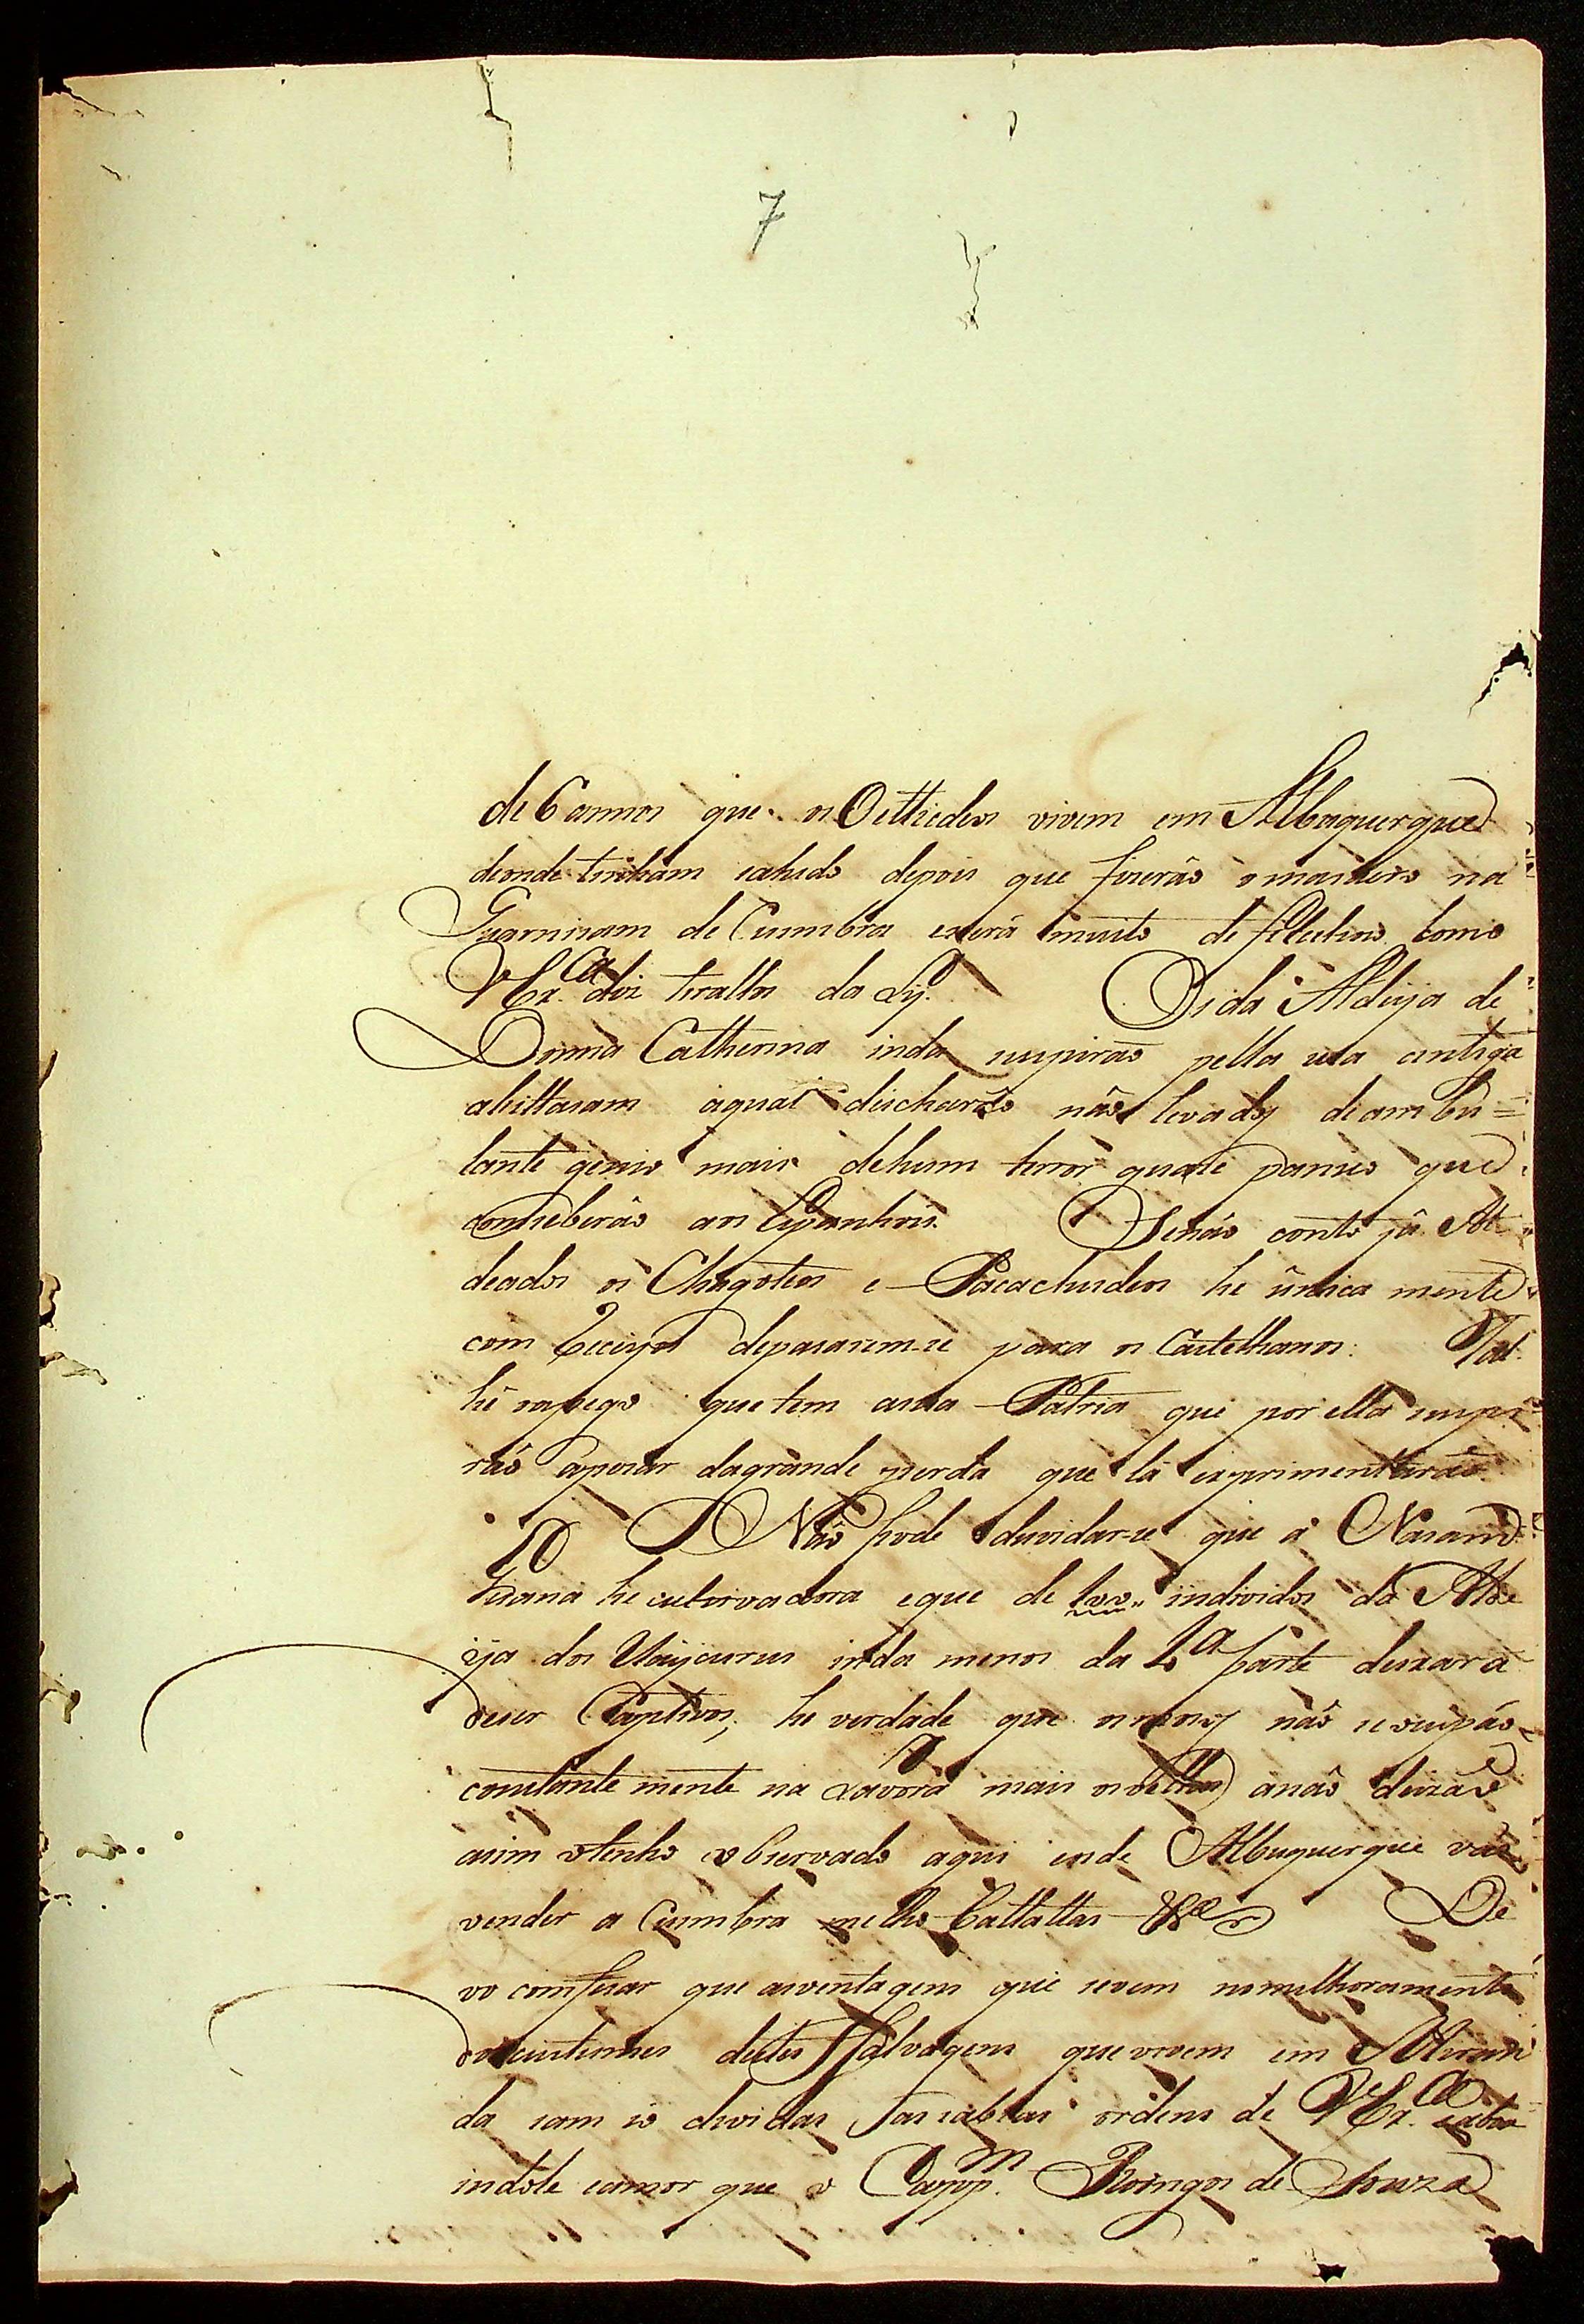 7
de 6 annos que os Oethiedeos vivem em Albuquerque
deonde tinham sahido depois que fizerão o masacro na
Guarnisam de Cuimbra e será muito de felicitrnos como
VEx.ca diz trallos da Ley. Os da Aldeya de
Donna Catherina inda suspirão pella sua antiga
abittasam aqual deicharão não levados de ambu=
lante genio mais de hum terror quase panico que
conseberão aos Espanhois. Senão conto já Al
deados os Chagoteos e Pacachudeos he única mente
com Receyo depasarem-se para os Castelhanos. Tal
hé oapego que tem asua Patria que por ella suspi
rão apesar dagrande perda que lá exprimentarão.
Não pode duvidar-se que a Nasam
he cultivadora e que de 100,, individos da Alde
ya dos Uaycurus inda menos da 4.a parte deixara
deser Captivos; he verdade que os mosos não se ocupão
constante mente na Lavora mais os velhos anão deixão
asim otenho observado aqui e nde Albuquerque vão
vender a Cuimbra milho Battattas &.a De
vo comfesar que asventagens que se vem no milhoramento
dos custumes destes Salvagens que vivem em Miran
da sam so dividas as sabias ordens de VEx.ca
indole eamor que o Cappm. Roingos de Souza